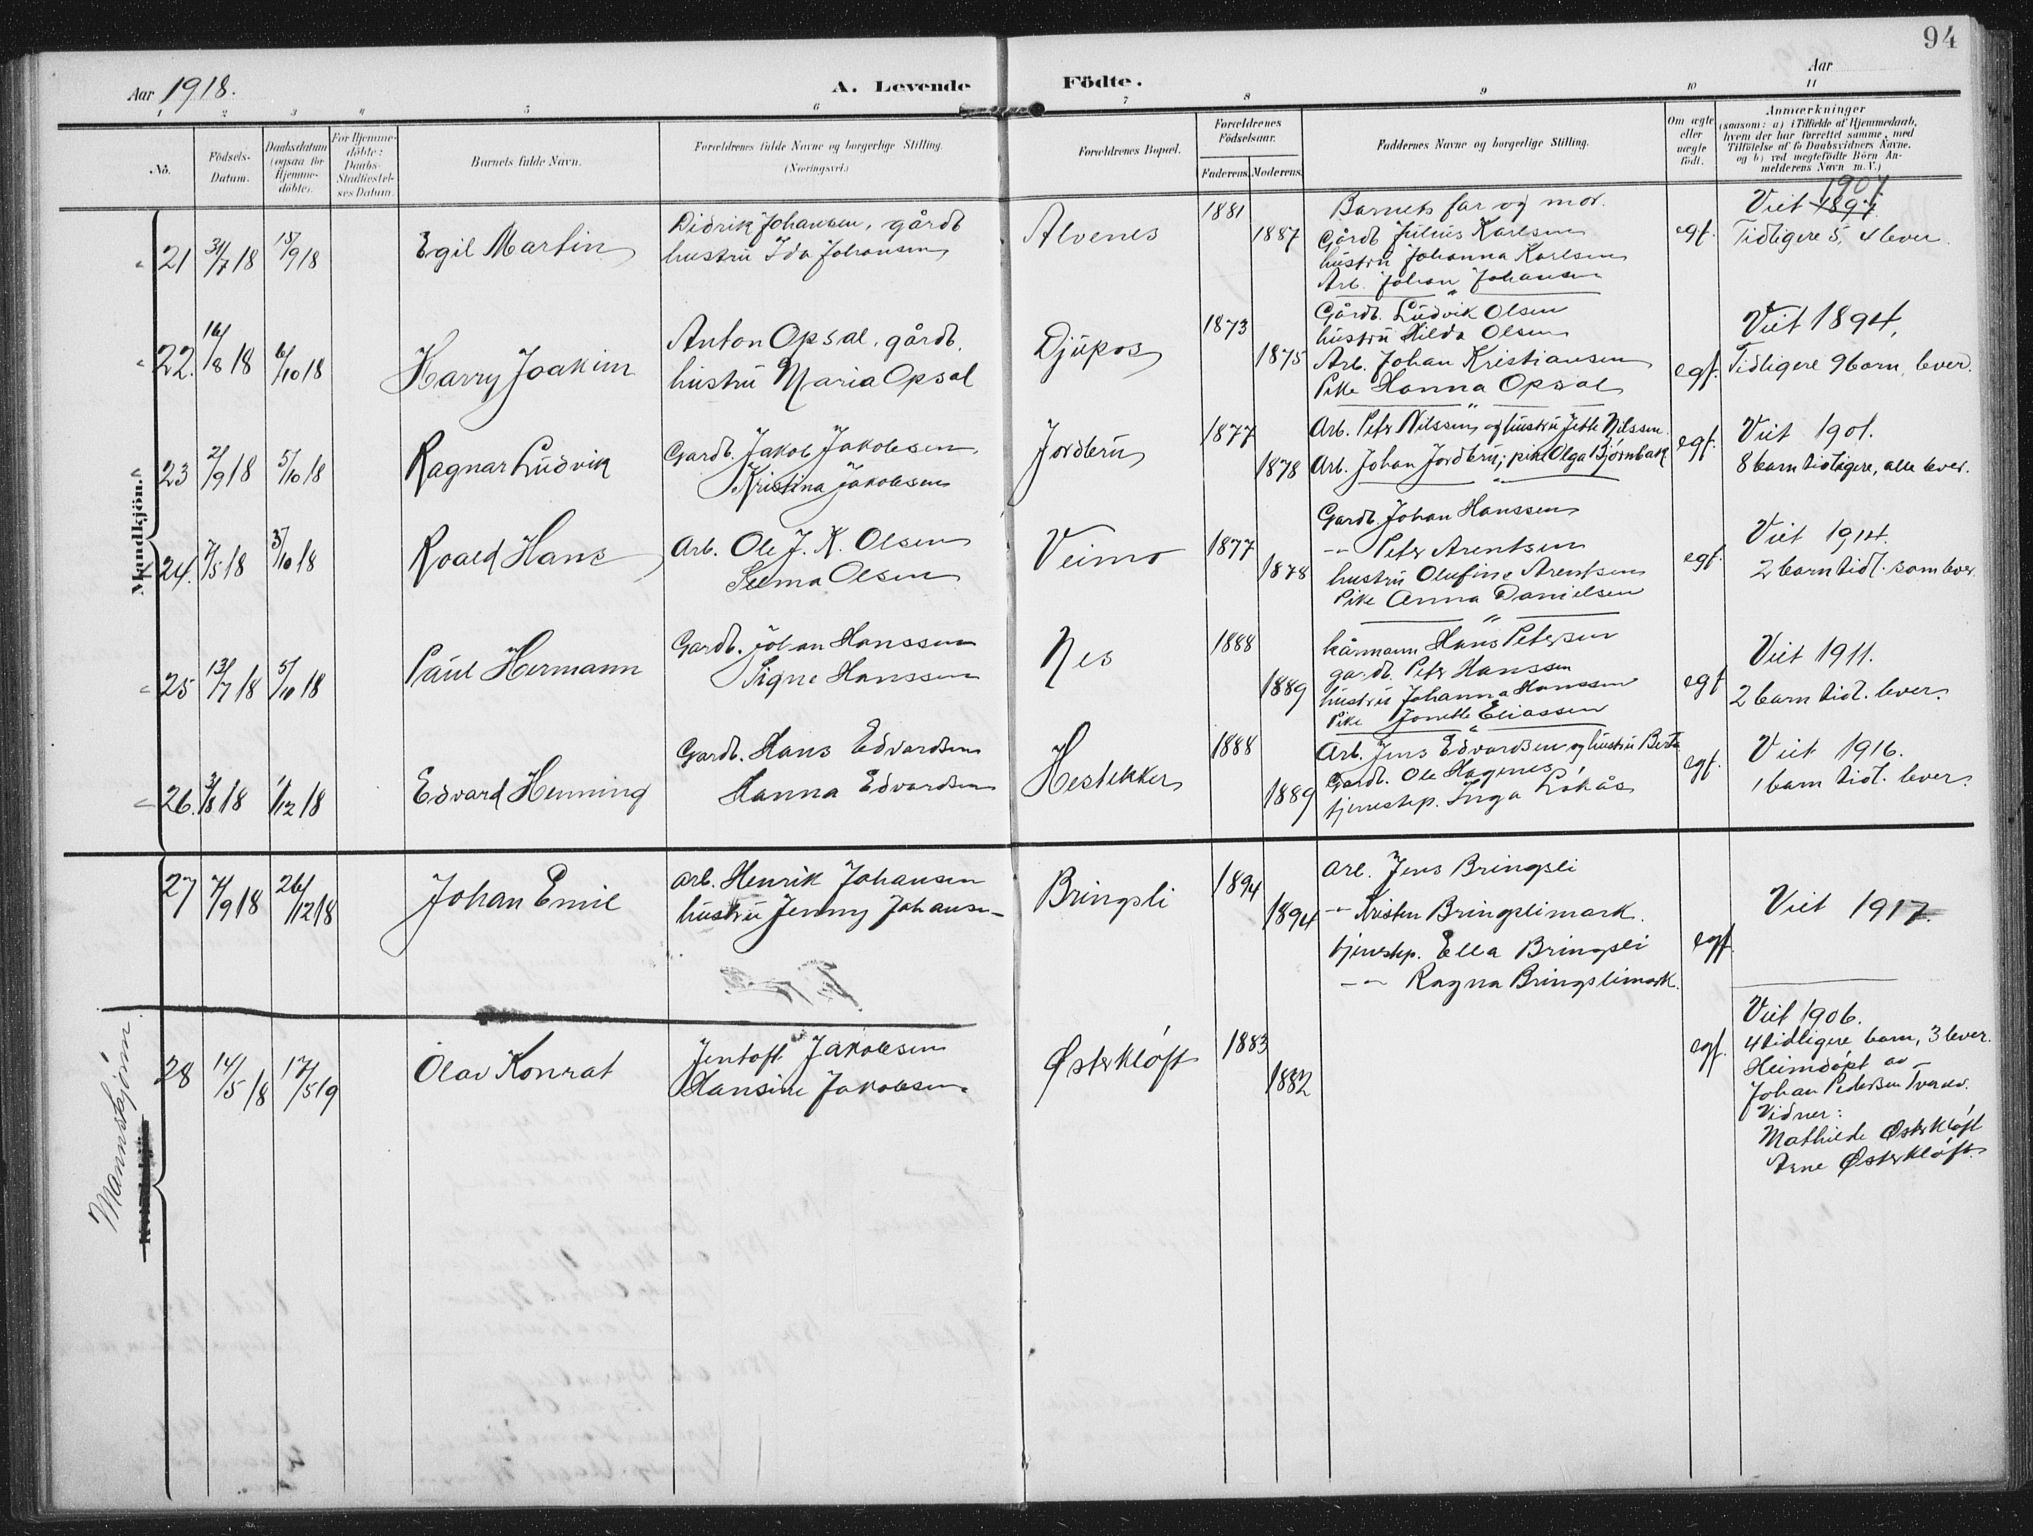 94
Aar 1918.
A. Levende Födte.
Aar
1 2 3 4 5 6 7 8 9 10 11
No.
Födsels-Datum.
Daabsdatum (ogsaa for Hjemme-döbte).
For Hjemme-döbte: Daabs-Stadfæstel-ses Datum.
Barnets fulde Navn.
Forældrenes fulde Navne og borgerlige Stilling. (Næringsvei.)
Forældrenes Bopæl.
Forældrenes Födselsaar.
Faderens. Moderens.
Faddernes Navne og borgerlige Stilling.
Om ægte eller uægte födt.
Anmærkninger
(saasom: a) i Tilfælde af Hjemmedaab,
hvem der har forrettet samme, med
Tilföielse af to Daabsvidners Navne.
og b) ved uægtefödte Börn An-
melderens Navn m. V.)
Mandkjön.
21 31/7 18 15/9 18 Egil Martin
Didrik Johansen, gårdb
hustru Ida Johansen
Alvenes 1881 1887
Barnets far og mor.
Gårdb Julius Karlsen
hustru Johanna Karlsen
Arb. Johan Johansen
egf.
Viet 1897 1907
Tidligere 5, 4 lever.
22. 16/8 18 6/10 18 Harry Joakim
Anton Opsal, gårdb.
hustru Maria Opsal
Djupos 1873 1875
Gårdb. Ludvik Olsen
hustru Hilda Olsen
Arb. Johan Kristiansen
Pike Hanna Opsal
egf.
Viet 1894.
Tidligere 9 barn, lever.
23 2/9 18 5/10 18 Ragnar Ludvik
Gardb. Jakob Jakobsen
Kristina Jakobsen
Jordbru 1877 1878
Arb. Petr Nilssen og hustru Jette Nilssen
Arb. Johan Jordbru; pike Olga Bjørnbak
egf.
Viet 1901.
8 barn tidligere, alle lever.
24. 7/5 18 3/10 18 Roald Hans
Arb. Ole J. K. Olsen
Selma Olsen
Veimo 1877 1878
Gardb. Johan Hanssen
-"- Petr Arentsen
hustru Olufine Arentsen
Pike Anna Danielsen
egf.
Viet 1914.
2 barn tidl. som lever
25 13/7 18 5/10 18 Paul Hermann
Gardb. Johan Hanssen
Signe Hanssen
Nes 1888 1889
kårmann Hans Petersen
gardb. Petr Hanssen
hustru Johanna Hanssen
Pike Jonette Eliassen
egf
Viet 1911.
2 barn tidl. lever.
26. 3/8 18 1/12 18 Edvard Henning
Gardb. Hans Edvardsen
Hanna Edvardsen
Hestekker 1888 1889
Arb. Jens Edvardsen og hustru Berta
Gardb. Ole Hagenes
tjenestep. Inga Lökås
egf.
Viet 1916.
1 barn tidl. lever.
27 7/9 18 26/12 18 Johan Emil
Arb. Henrik Johansen
hustru Jenny Johansen
Bringsli 1894 1894
Arb. Jens Bringsli
-"- Kristen Bringslimark.
tjenstep. Ella Bringsli
-"- Ragna Bringslimark.
egf.
Viet 1917.
Mannskjønn
Kvindekjön
28 14/5 18 17/5 19 Olav Konrat
Jentoft Jakobsen
Hansine Jakobsen
Østerkløft 1883 1882
egf.
Viet 1906.
4 tidligere barn, 3 lever.
Heimdøpt av
Johan Pedersen Tverov.
Vidner:
Mathilde Østerkløft
Arne Østerkløft.